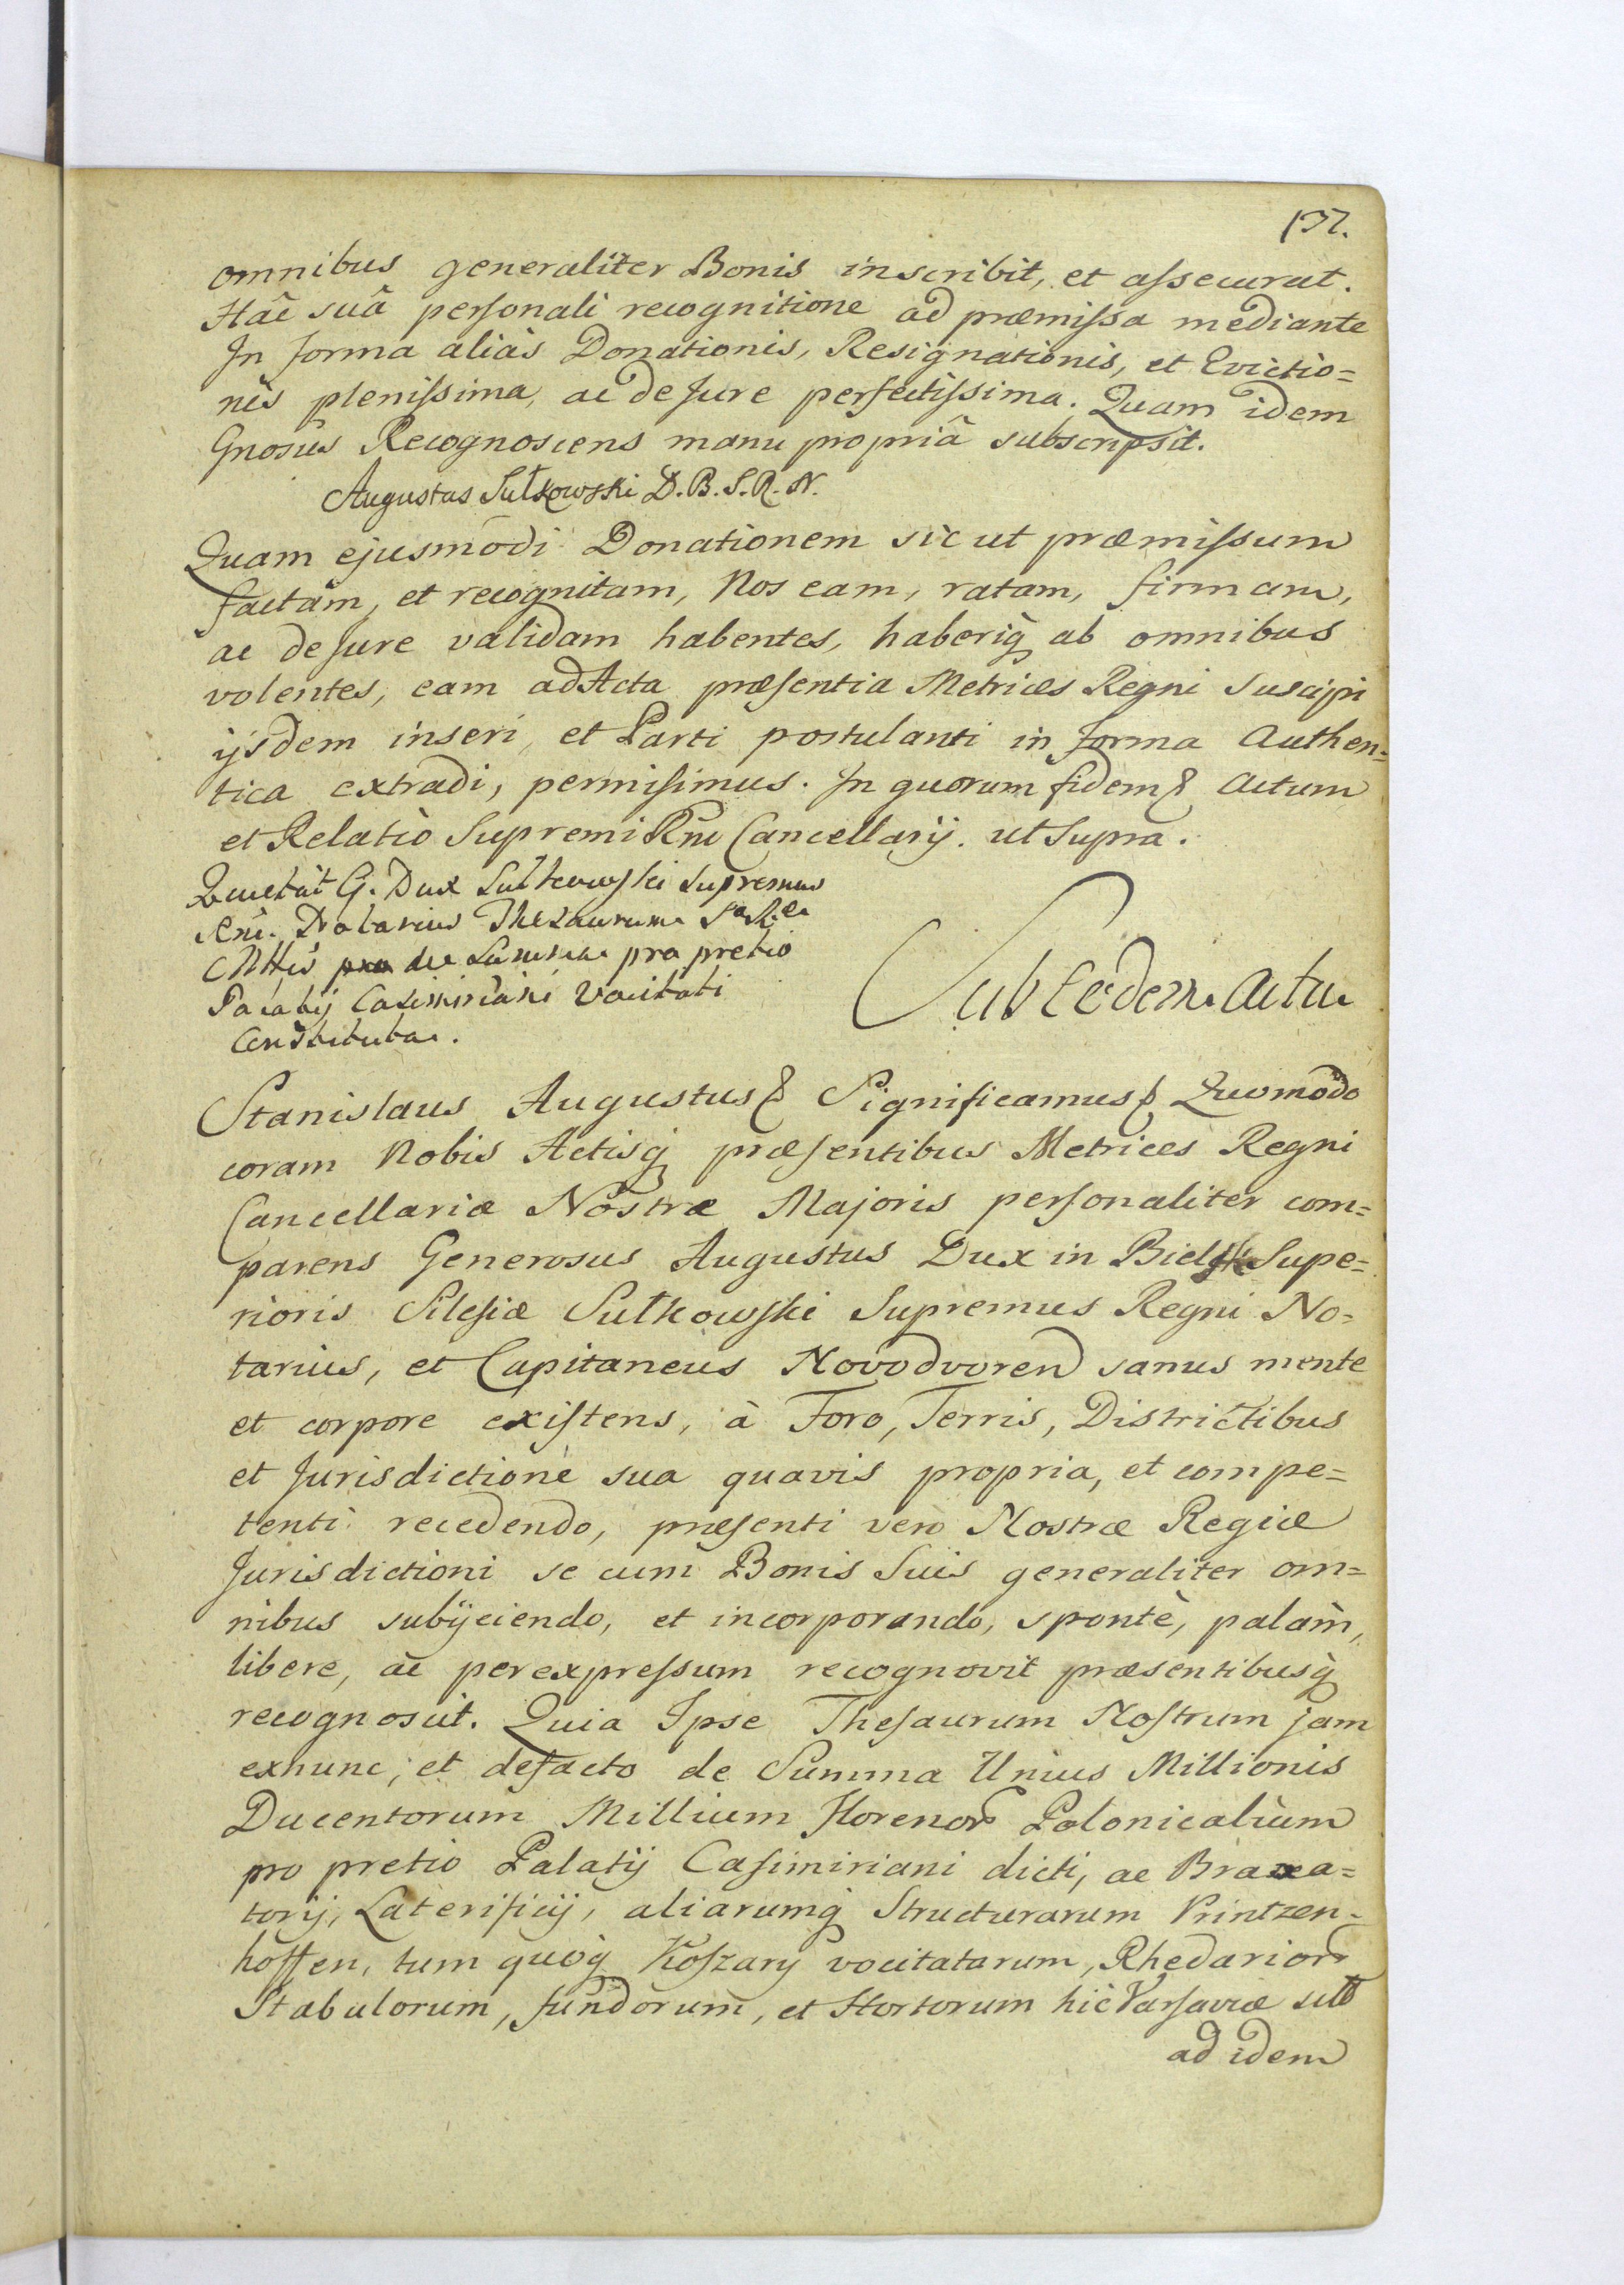 137.
omnibus generaliter Bonis inscribit, et aſsecurat.
Hâc suâ perſonali recognitione ad præmiſsa mediante
In forma aliàs Donationis, Resignationis, et Evictio=
nis pleniſsima, ac de Jure perfectiſsima. Quam idem
Gnosus Recognoscens manu propriâ subscripsit.
Augustus Sułkowski D. B. S. R. N.
Quam ejusmodi Donationem sic ut præmiſsum
factam, et recognitam, Nos eam, ratam, firmam,
ac de Jure validam habentes, haberiq́ ab omnibus
volentes, eam ad Acta præſentia Metrices Regni Suscipi
ijsdem inseri, et Parti postulanti in forma Authen=
tica extradi, permiſimus. In quorum fidem & Actum
et Relatio Supremi Rni Cancellarij. ut Supra.
Quietat G. Dux Sulkowſki Supremus
Rni. Notarius Thesaurum S. R.
Mttis de Summa pro pretio
Palatij Casimiriani Vocitati
Constituta.
Sub Eodem Actu
Stanislaus Augustus & Significamus & Quomodo
coram Nobis Actisq́ præſentibus Metrices Regni
Cancellariæ Nostræ Majoris perſonaliter com=
parens Generosus Augustus Dux in Bielsk Supe=
rioris Sileſiæ Sułkowſki Supremus Regni No=
tarius, et Capitaneus Novodvoren sanus mente
et corpore exiſtens, à Foro, Terris, Districtibus
et Jurisdictione sua quavis propria, et compe=
tenti recedendo, præſenti vero Nostræ Regiæ
Jurisdictioni se cum Bonis Suis generaliter om=
nibus subijciendo, et incorporando, spontè, palàm,
libere, ac per expreſsum recognovit præsentibusq́
recognoscit. Quia Ipse Theſaurum Noſtrum jam
exnunc, et defacto de Summa Unius Millionis
Ducentorum Millium Florenor Polonicalium
pro pretio Palatij Caſimiriani dicti, ac Braxa=
torij, Laterificij, aliarumq́ Structurarum Printzen=
hoffen, tum quoq́ Koſzary vocitatarum, Rhedarior
Stabulorum, fundorum, et Hortorum hic Varſaviæ sit
ad idem